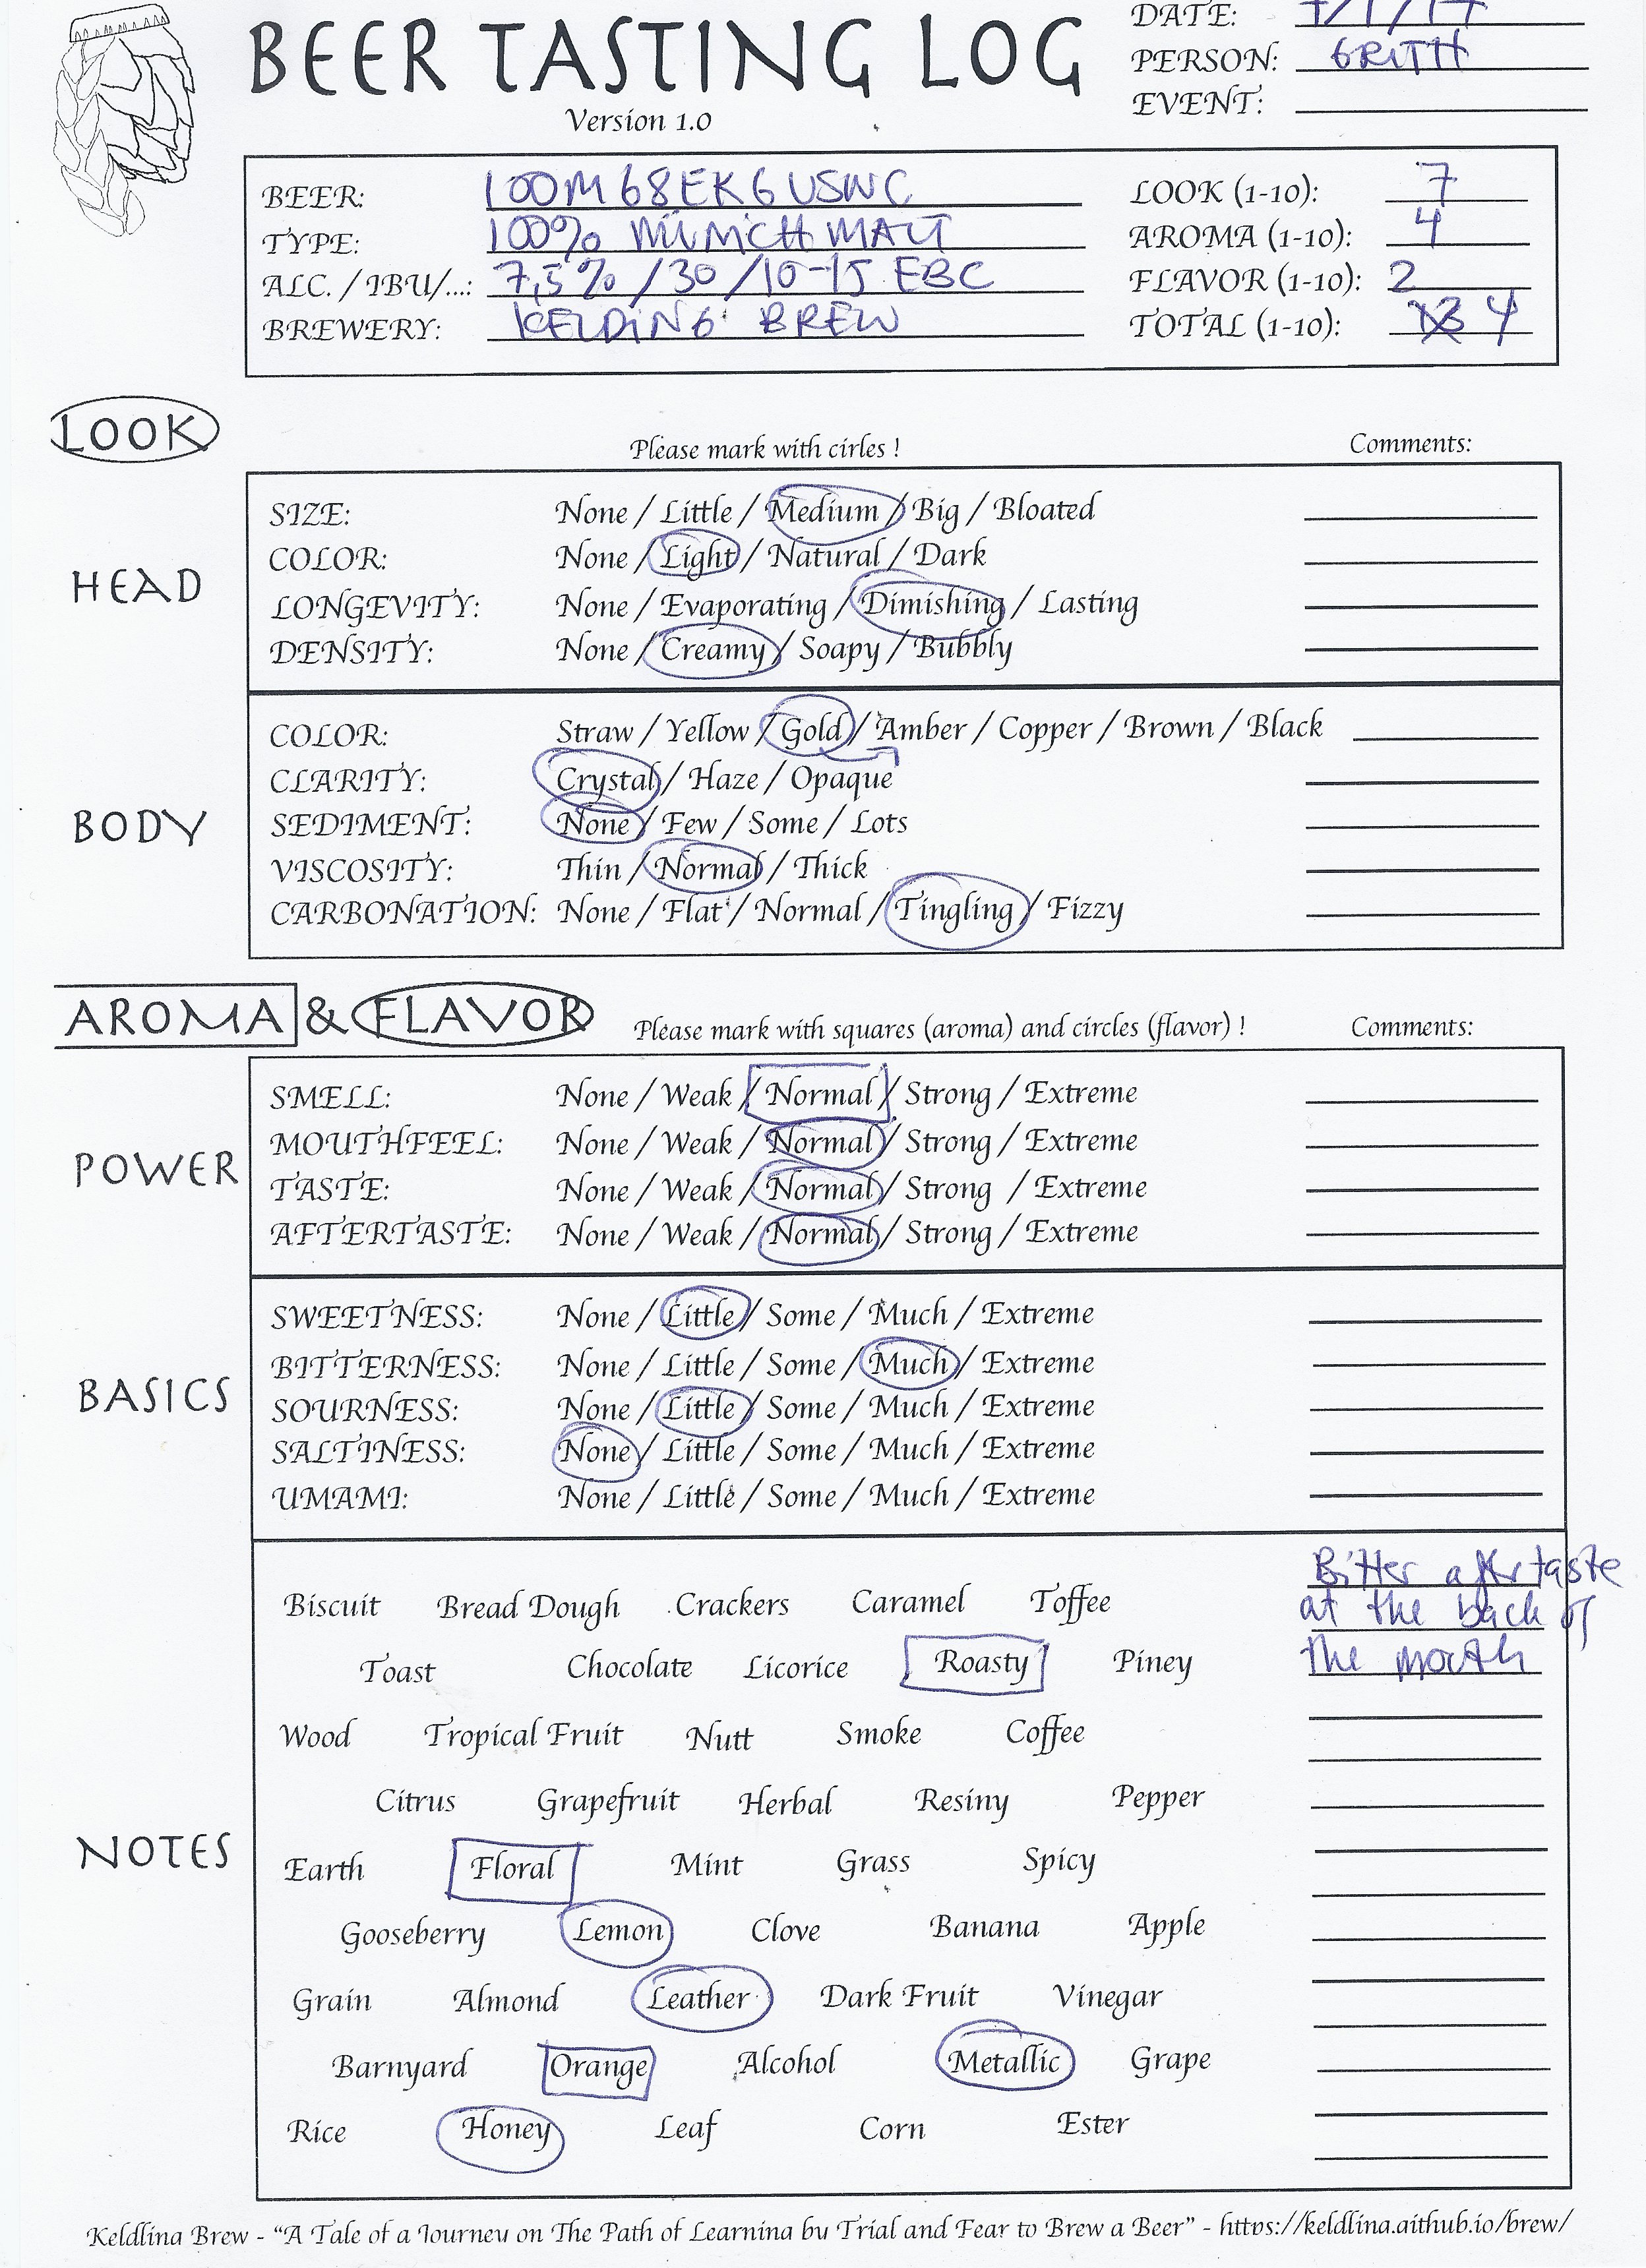 BEER TASTING LOG
Version 1.0
DATE:
PERSON: GRITH
EVENT:
BEER: 100M68EK6USWC
TYPE: 100% MÜNICH MALT
ALC. / IBU/...: 7,5% / 30 / 10-15 EBC
BREWERY: KELDING BREW
LOOK (1-10): 7
AROMA (1-10): 4
FLAVOR (1-10): 2
TOTAL (1-10): 4
LOOK
Please mark with cirles !
Comments:
HEAD
SIZE: None / Little / Medium / Big / Bloated
COLOR: None / Light / Natural / Dark
LONGEVITY: None / Evaporating / Dimishing / Lasting
DENSITY: None / Creamy / Soapy / Bubbly
BODY
COLOR: Straw / Yellow / Gold / Amber / Copper / Brown / Black
CLARITY: Crystal / Haze / Opaque
SEDIMENT: None / Few / Some / Lots
VISCOSITY: Thin / Normal / Thick
CARBONATION: None / Flat / Normal / Tingling / Fizzy
AROMA & FLAVOR
Please mark with squares (aroma) and circles (flavor) !
Comments:
POWER
SMELL: None / Weak / Normal / Strong / Extreme
MOUTHFEEL: None / Weak / Normal / Strong / Extreme
TASTE: None / Weak / Normal / Strong / Extreme
AFTERTASTE: None / Weak / Normal / Strong / Extreme
BASICS
SWEETNESS: None / Little / Some / Much / Extreme
BITTERNESS: None / Little / Some / Much / Extreme
SOURNESS: None / Little / Some / Much / Extreme
SALTINESS: None / Little / Some / Much / Extreme
UMAMI: None / Little / Some / Much / Extreme
NOTES
Biscuit Bread Dough Crackers Caramel Toffee
Toast Chocolate Licorice Roasty Piney
Wood Tropical Fruit Nutt Smoke Coffee
Citrus Grapefruit Herbal Resiny Pepper
Earth Floral Mint Grass Spicy
Gooseberry Lemon Clove Banana Apple
Grain Almond Leather Dark Fruit Vinegar
Barnyard Orange Alcohol Metallic Grape
Rice Honey Leaf Corn Ester
Bitter aftertaste
at the back of
the mouth
Keldling Brew - "A Tale of a Journey on The Path of Learning by Trial and Fear to Brew a Beer" - https://keldling.github.io/brew/